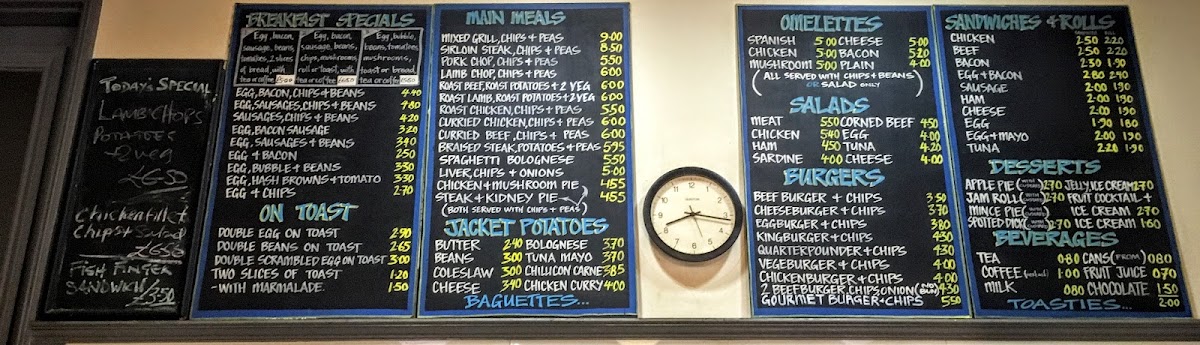 TODAY'S SPECIAL
LAMB CHOPS
POTATOES
+ 2 VEG
£6.50
Chicken fillet
Chips + Salad
FISH FINGER
SANDWICH £3.50
BREAKFAST SPECIALS
Egg, bacon,
sausage, beans,
tomatoes, 2 slices
of bread, with
tea or coffee
Egg, bacon,
sausage, beans,
chips, mushrooms,
roll or toast, with
tea or coffee
Egg, bubble,
beans, tomatoes,
toast or bread
tea or coffee
EGG, BACON, CHIPS + BEANS 4.40
EGG, SAUSAGES, CHIPS + BEANS 4.80
SAUSAGES, CHIPS + BEANS 4.20
EGG, BACON SAUSAGE 3.20
EGG, SAUSAGES + BEANS 3.40
EGG + BACON 2.50
EGG, BUBBLE + BEANS 3.30
EGG, HASH BROWNS + TOMATO 3.30
EGG + CHIPS 2.70
ON TOAST
DOUBLE EGG ON TOAST 2.90
DOUBLE BEANS ON TOAST 2.65
DOUBLE SCRAMBLED EGG ON TOAST 3.00
TWO SLICES OF TOAST 1.20
- WITH MARMALADE 1.50
MAIN MEALS
MIXED GRILL, CHIPS + PEAS 9.00
SIRLOIN STEAK, CHIPS + PEAS 8.50
PORK CHOP, CHIPS + PEAS 5.50
LAMB CHOP, CHIPS + PEAS 6.00
ROAST BEEF, ROAST POTATOES + 2 VEG 6.00
ROAST LAMB, ROAST POTATOES + 2 VEG 6.00
ROAST CHICKEN, CHIPS + PEAS 5.50
CURRIED CHICKEN, CHIPS + PEAS 6.00
CURRIED BEEF, CHIPS + PEAS 6.00
BRAISED STEAK, POTATOES + PEAS 5.95
SPAGHETTI BOLOGNESE 5.50
LIVER, CHIPS + ONIONS 5.00
CHICKEN + MUSHROOM PIE 4.55
STEAK + KIDNEY PIE 4.55
(BOTH SERVED WITH CHIPS + PEAS)
JACKET POTATOES
BUTTER 2.40 BOLOGNESE 3.70
BEANS 3.00 TUNA MAYO 3.70
COLESLAW 3.00 CHILLI CON CARNE 3.85
CHEESE 3.40 CHICKEN CURRY 4.00
BAGUETTES...
OMELETTES
SPANISH 5.00 CHEESE 5.00
CHICKEN 5.00 BACON 5.20
MUSHROOM 5.00 PLAIN 4.00
(ALL SERVED WITH CHIPS + BEANS
OR SALAD ONLY)
SALADS
MEAT 5.50 CORNED BEEF 4.50
CHICKEN 5.40 EGG 4.00
HAM 4.50 TUNA 4.20
SARDINE 4.00 CHEESE 4.00
BURGERS
BEEFBURGER + CHIPS 3.50
CHEESEBURGER + CHIPS 3.70
EGGBURGER + CHIPS 3.80
KINGBURGER + CHIPS 4.30
QUARTERPOUNDER + CHIPS 4.30
VEGEBURGER + CHIPS 4.00
CHICKENBURGER + CHIPS 4.00
2 BEEFBURGER, CHIPS, ONION (NO BUN) 4.30
GOURMET BURGER + CHIPS 5.50
SANDWICHES & ROLLS
CHICKEN 2.50 2.20
BEEF 2.50 2.20
BACON 2.30 1.90
EGG + BACON 2.80 2.90
SAUSAGE 2.00 1.90
HAM 2.00 1.90
CHEESE 2.00 1.90
EGG 1.90 1.80
EGG + MAYO 2.00 1.90
TUNA 2.20 1.90
DESSERTS
APPLE PIE 2.70 JELLY, ICE CREAM 2.70
JAM ROLL 2.70 FRUIT COCKTAIL +
MINCE PIE ICE CREAM 2.70
SPOTTED DICK 2.70 ICE CREAM 1.60
BEVERAGES
TEA 0.80 CANS (FROM) 0.80
COFFEE 1.00 FRUIT JUICE 0.70
MILK 0.80 CHOCOLATE 1.50
TOASTIES... 2.00
12
1
2
3
4
5
6
7
8
9
10
11